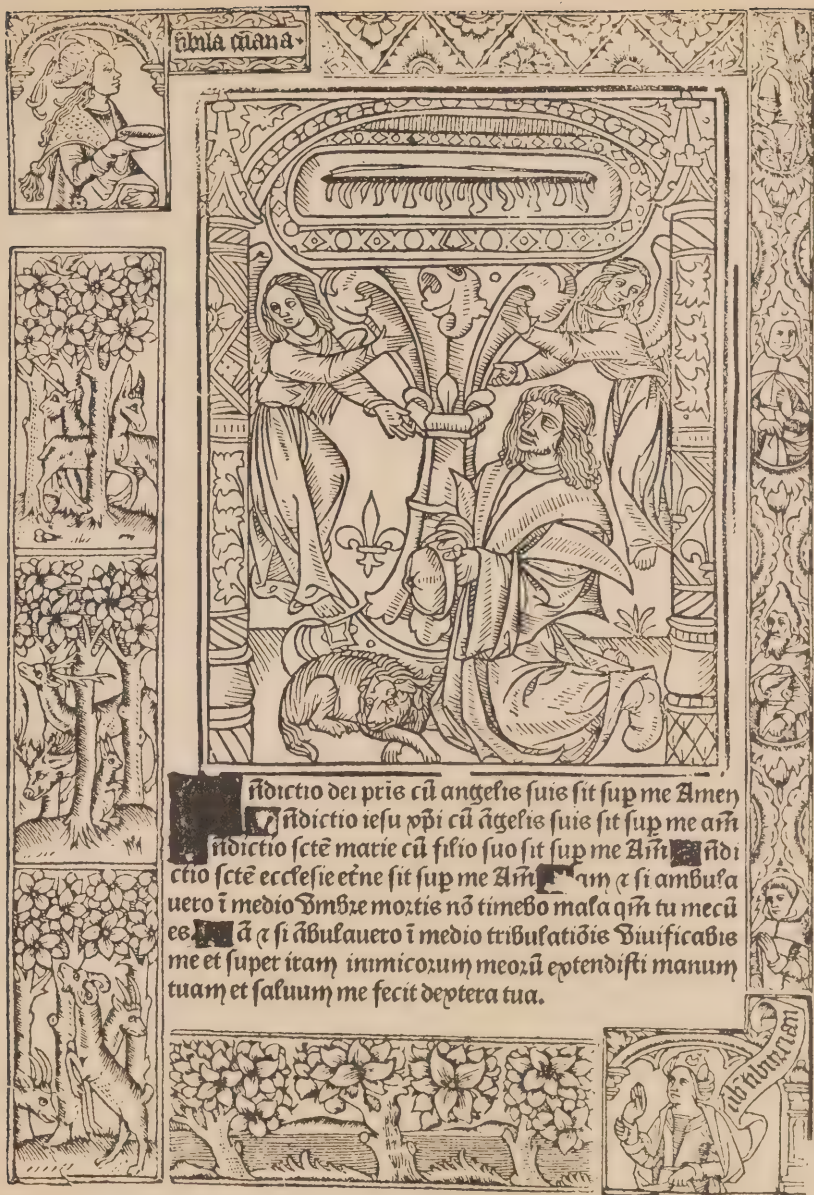 sibila cūana
ñdictio dei pris cū angelis suis sit sup me Amen
ñdictio iesu xp̄i cū āgelis suis sit sup me am̄
ñdictio sctē marie cū filio suo sit sup me Am̄ ñdi
ctio sctē ecclesie etne sit sup me Am̄ am ⁊ si ambula
uero ī medio vmbre mortis nō timebo mala qm̄ tu mecū
es ā ⁊ si ābulauero ī medio tribulatiōis viuificabis
me et super iram inimicorum meorū extendisti manum
tuam et saluum me fecit dextera tua.